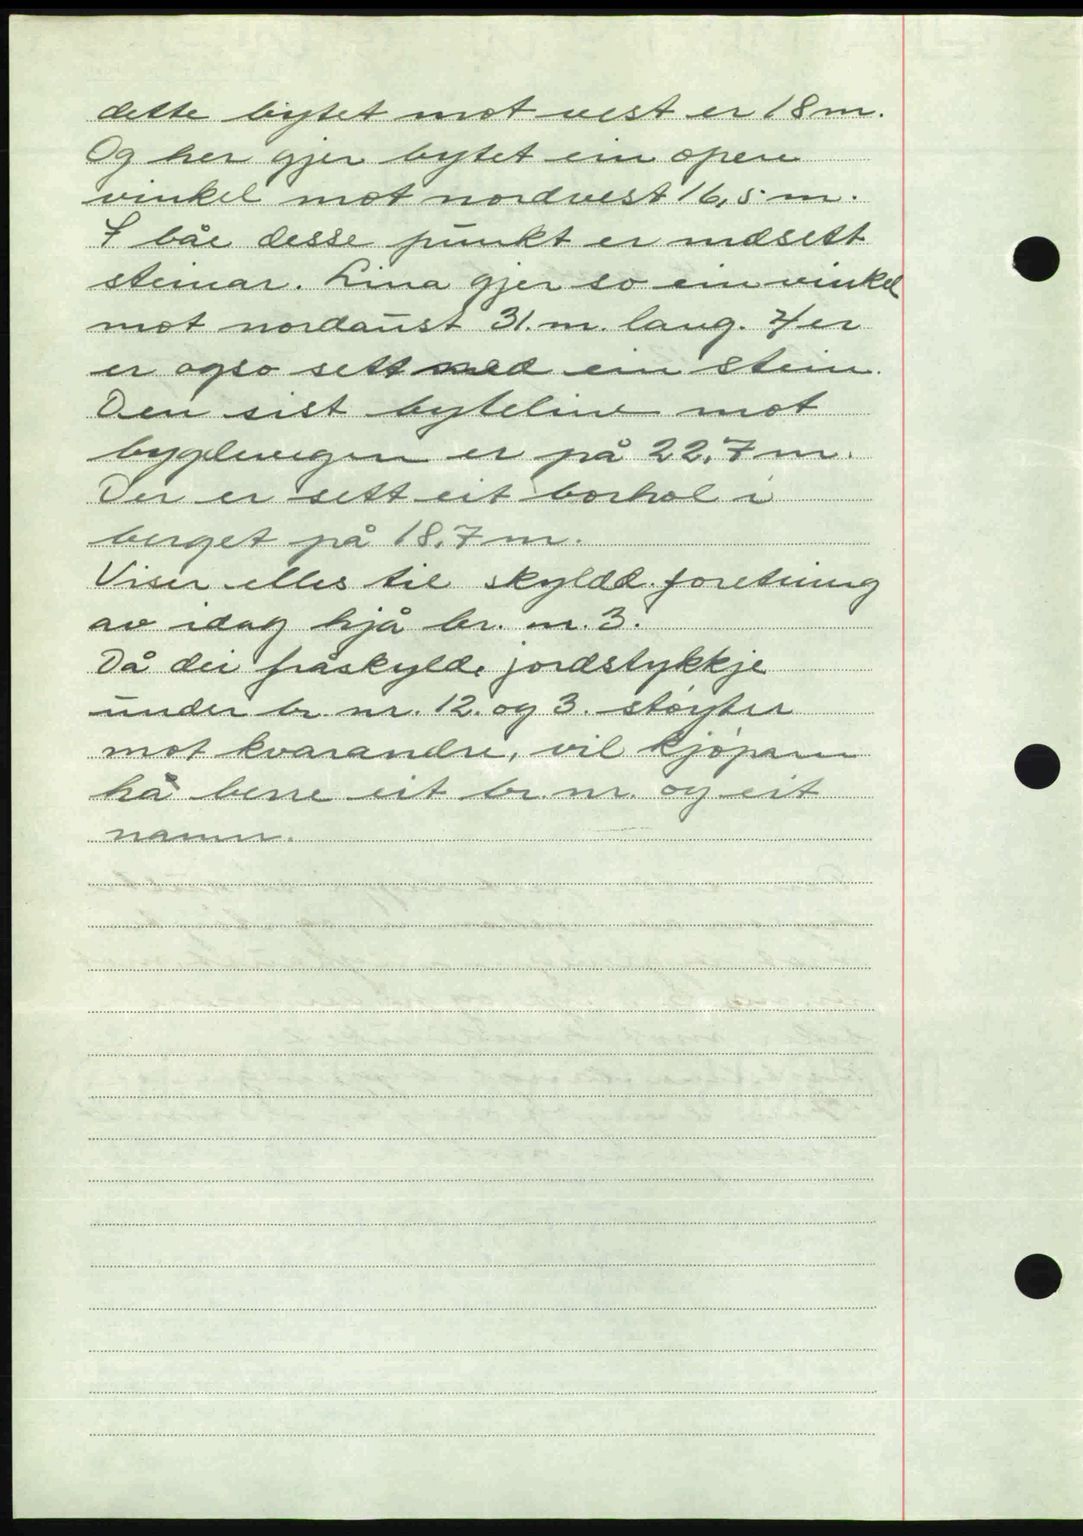 dette bytet mot vest er 18 m.
Og her gjer bytet ein open
vinkel mot nordvest 16,5 m.
I båe desse punkt er nedsett
steinar. Lina gjer so ein vinkel
mot nordaust 31. m. lang. Her
er ogso sett med ein stein.
Den sist byteline mot
bygdevegen er på 22,7 m.
Der er sett eit borhol i
berget på 18,7 m.
Viser elles til skyldd.foretning
av idag hjå br. nr. 3.
Då dei fråskylde jordstykkje
under br nr. 12. og 3. støyter
mot kvarandre, vil kjøparen
hå berre eit br. nr. og eit
namn.